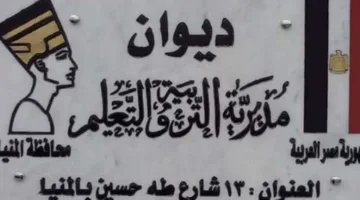 ديوان
مُديرية التربية والتعليم
محافظة المنيا
جمهورية مصر العربية
العنوان : ١٣ شارع طه حسين بالمنيا